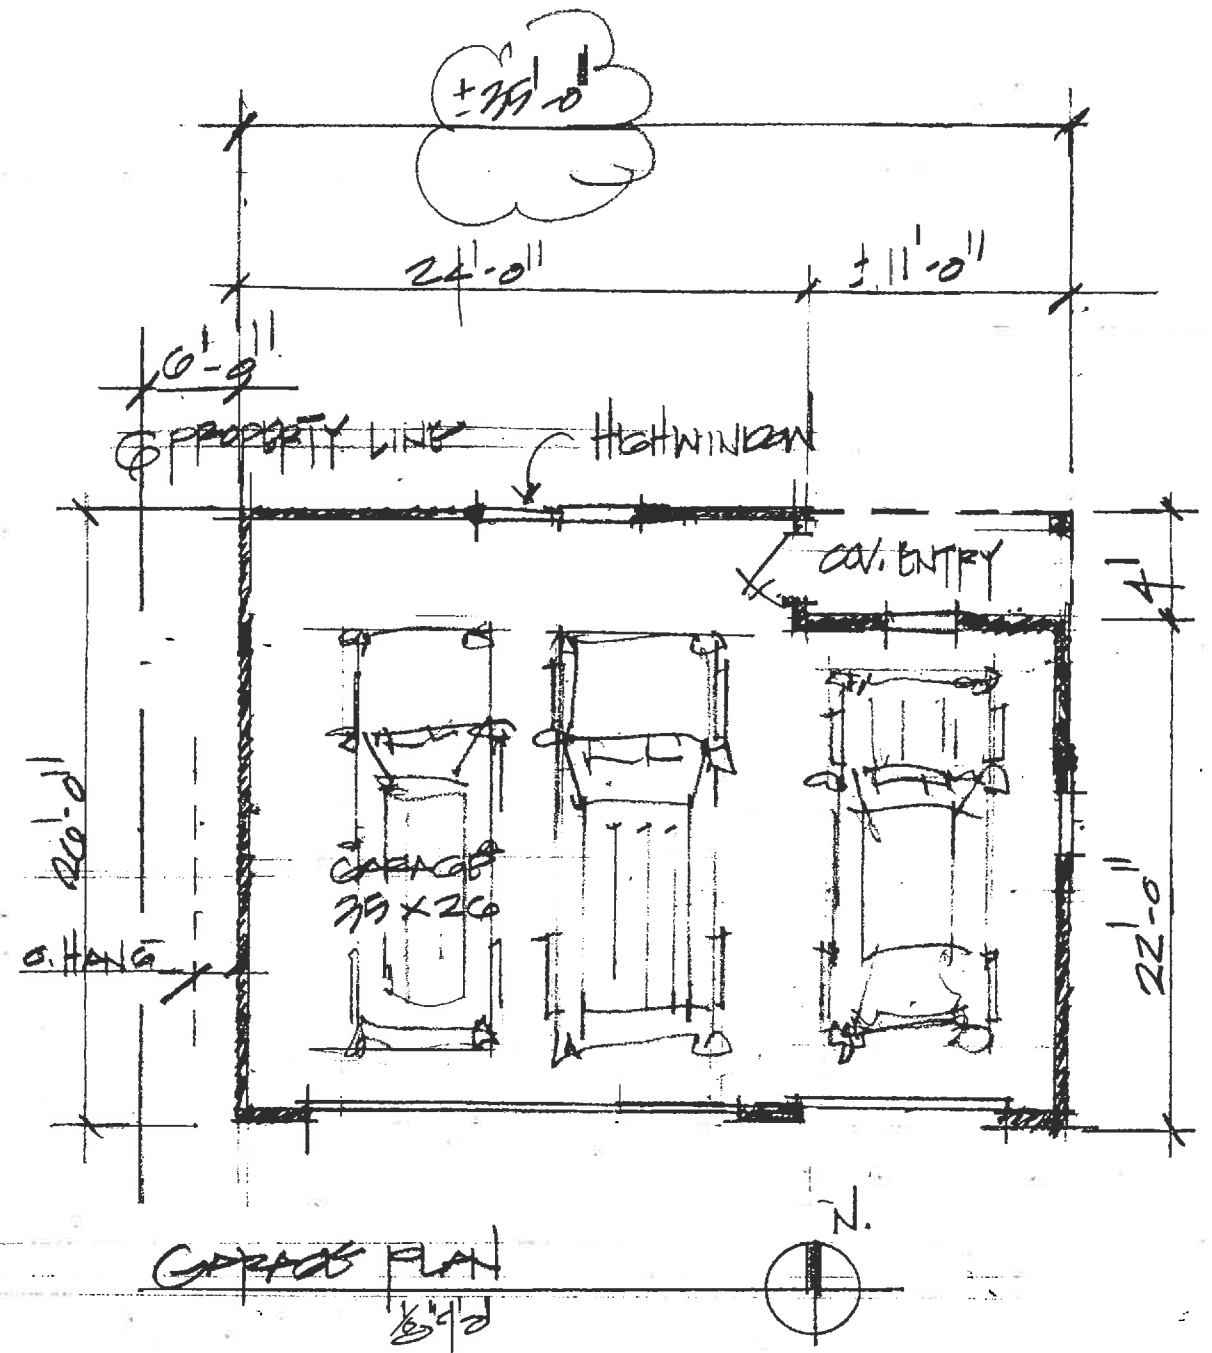 ±35'-0"
24'-0"
±11'-0"
6'-0"
℄ PROPERTY LINE
HIGH WINDOW
COV. ENTRY
4'
26'-0"
GARAGE
35 X 26
O. HANG
22'-0"
N.
GARAGE PLAN
1/8"=1'-0"